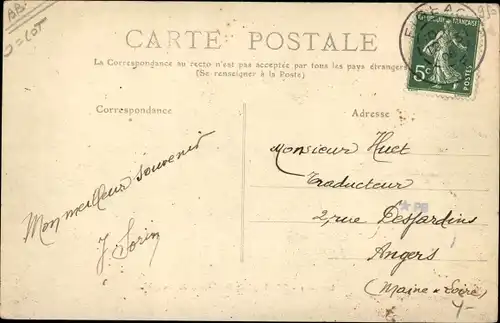 CARTE POSTALE
La Correspondance au recto n'est pas acceptée par tous les pays étrangers
(Se renseigner à la Poste)
Correspondance
Adresse
Mon meilleur souvenir
J. Sorin
Monsieur Huet
Traducteur
2, rue Desjardins
Angers
(Maine & Loire)
REPUBLIQUE FRANÇAISE
5c
FIGEAC
LOT